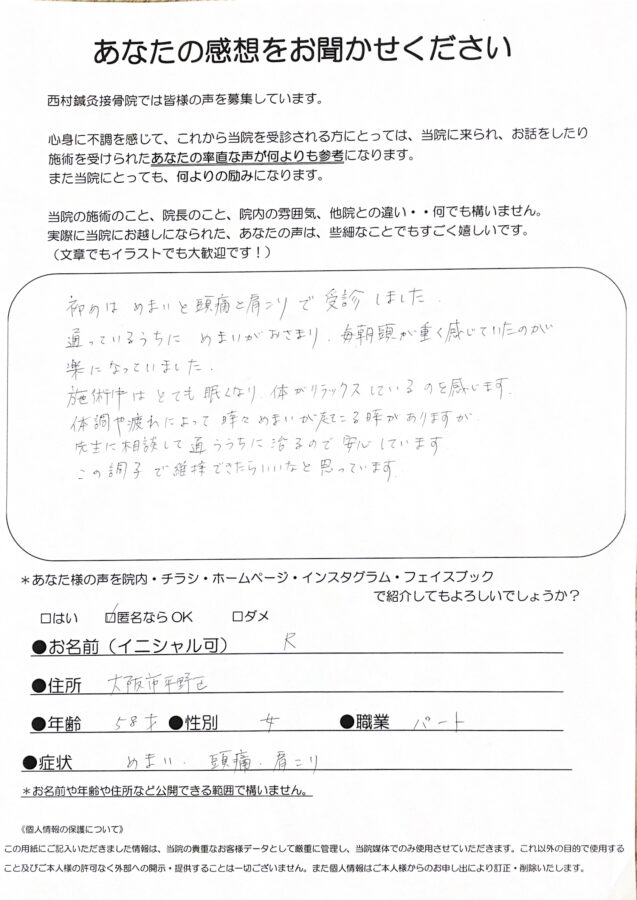 あなたの感想をお聞かせください
西村鍼灸接骨院では皆様の声を募集しています。
心身に不調を感じて、これから当院を受診される方にとっては、当院に来られ、お話をしたり
施術を受けられたあなたの率直な声が何よりも参考になります。
また当院にとっても、何よりの励みになります。
当院の施術のこと、院長のこと、院内の雰囲気、他院との違い・・何でも構いません。
実際に当院にお越しになられた、あなたの声は、些細なことでもすごく嬉しいです。
（文章でもイラストでも大歓迎です！）
初めは めまいと頭痛と肩こりで受診しました.
通っているうちに めまいがおさまり、毎朝頭が重く感じていたのが
楽になっていました.
施術中はとても眠くなり、体がリラックスしているのを感じます.
体調や疲れによって時々めまいが起こる時がありますが
先生に相談して通ううちに治るので安心しています
この調子で維持できたらいいなと思っています.
＊あなた様の声を院内・チラシ・ホームページ・インスタグラム・フェイスブック
で紹介してもよろしいでしょうか？
□はい ☑匿名ならOK □ダメ
●お名前（イニシャル可） R
●住所 大阪市平野区
●年齢 58才 ●性別 女 ●職業 パート
●症状 めまい、頭痛、肩こり
＊お名前や年齢や住所など公開できる範囲で構いません。
《個人情報の保護について》
この用紙にご記入いただきました情報は、当院の貴重なお客様データとして厳重に管理し、当院媒体でのみ使用させていただきます。これ以外の目的で使用する
こと及びご本人様の許可なく外部への開示・提供することは一切ございません。また個人情報はご本人様からのお申し出により訂正・削除いたします。